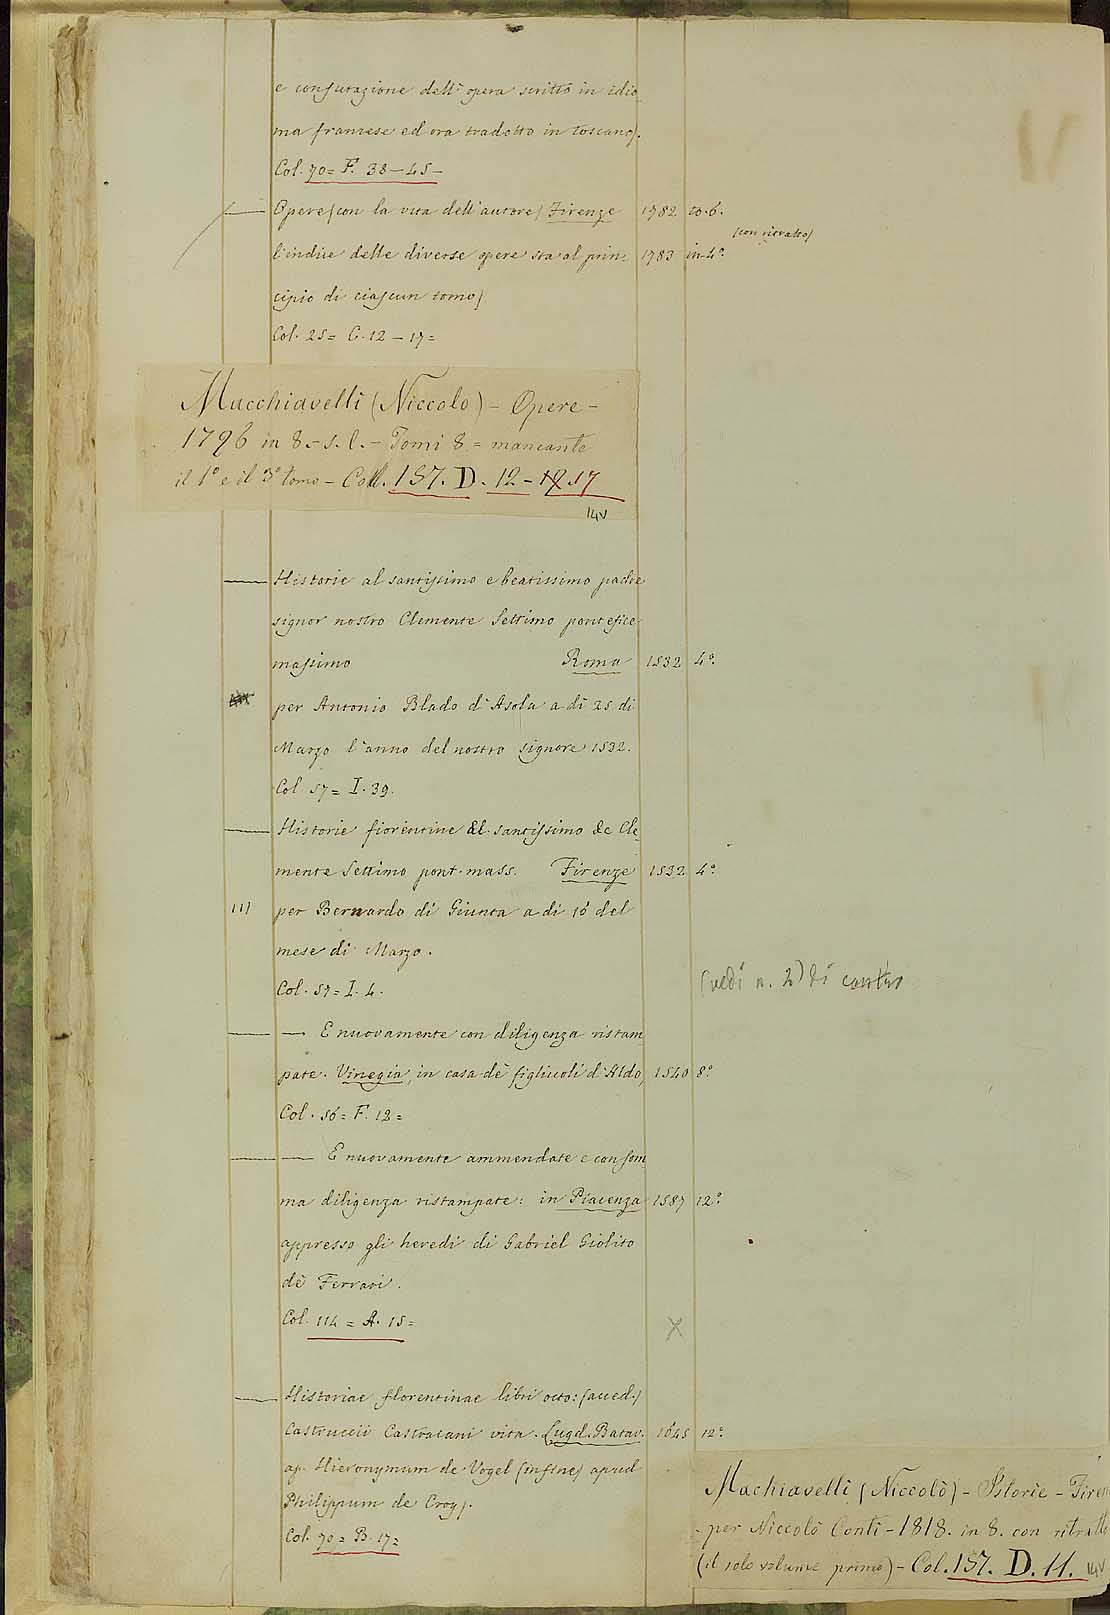 e confutazione dell'opera scritto in idio=
ma francese ed ora tradotto in toscano).
Col. 70= F. 38—45—
— Opere (con la vita dell'autore) Firenze 1782 to. 6.
(con ritratto)
l'indice delle diverse opere sta al prin= 1783 in-4°.
cipio di ciascun tomo)
Col. 25= C. 12—17=
Macchiavelli (Niccolo) — Opere —
1796 in 8.— s. l. — Tomi 8 = mancante
il 1° e il 3° tomo — Coll. 157. D. 12 — 17
14v
— Historie al santissimo e beatissimo padre
signor nostro Clemente Settimo pontefice
massimo Roma 1532 4°.
per Antonio Blado d'Asola a dì 25 di
Marzo l'anno del nostro signore 1532.
Col 57= I. 39.
— Historie fiorentine al santissimo &c Cle=
mente Settimo pont. mass. Firenze 1532 4°.
111 per Bernardo di Giunta a di 16 del
mese di Marzo.
Col. 57= I. 4.
(vedi n. 2) di contro
— — E nuovamente con diligenza ristam=
pate. Vinegia, in casa de' figliuoli d'Aldo, 1540 8°.
Col. 56= F. 12=
— — E nuovamente ammendate e con som
ma diligenza ristampate: in Piacenza 1587 12°.
appresso gli heredi di Gabriel Giolito
de' Ferrari.
Col. 114 = A. 15=
X
— Historiae florentinae libri octo: (acced.)
Castruccii Castracani vita. Lugd. Batav. 1645 12°.
ap. Hieronymum de Vogel (in fine) apud
Philippum de Croy).
Col. 70= B. 17=
Machiavelli (Niccolò) — Istorie — Firen
- per Niccolò Conti — 1818. in 8. con ritratto
(il solo volume primo) — Col. 157. D. 11. 14v